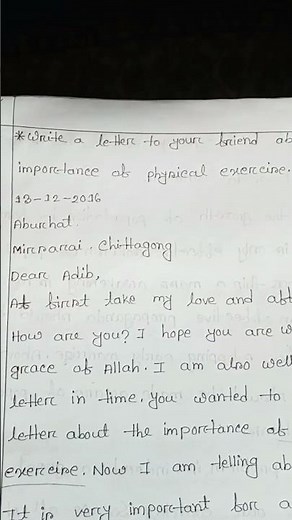 *Write a letter to your friend ab
importance of physical exercise.
13-12-2016
Aburhat.
Mirsarai. Chittagong
Dear Adib,
At first take my love and aft
How are you? I hope you are w
grace of Allah. I am also well
letter in time. you wanted to
letter about the importance of
exercise. Now I am telling ab
It is very important for a